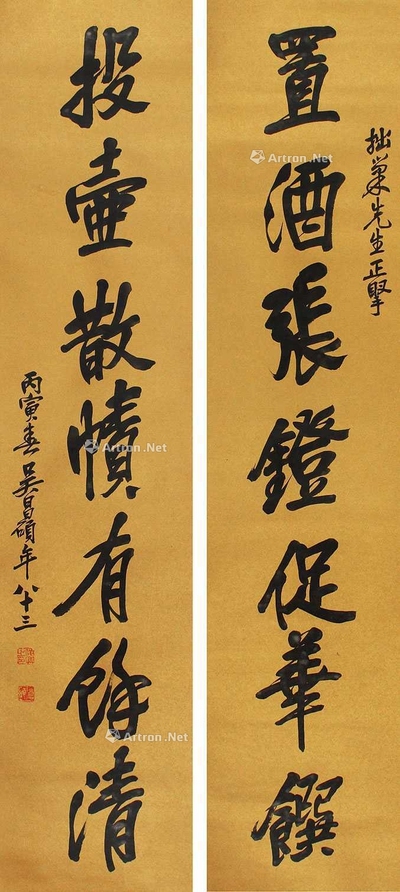 拙巢先生正擘
置酒張鐙促華饌
投壺散幘有餘清
丙寅春吳昌碩年八十三
Artron.Net
Artron.Net
Artron.Net
Artron.Net